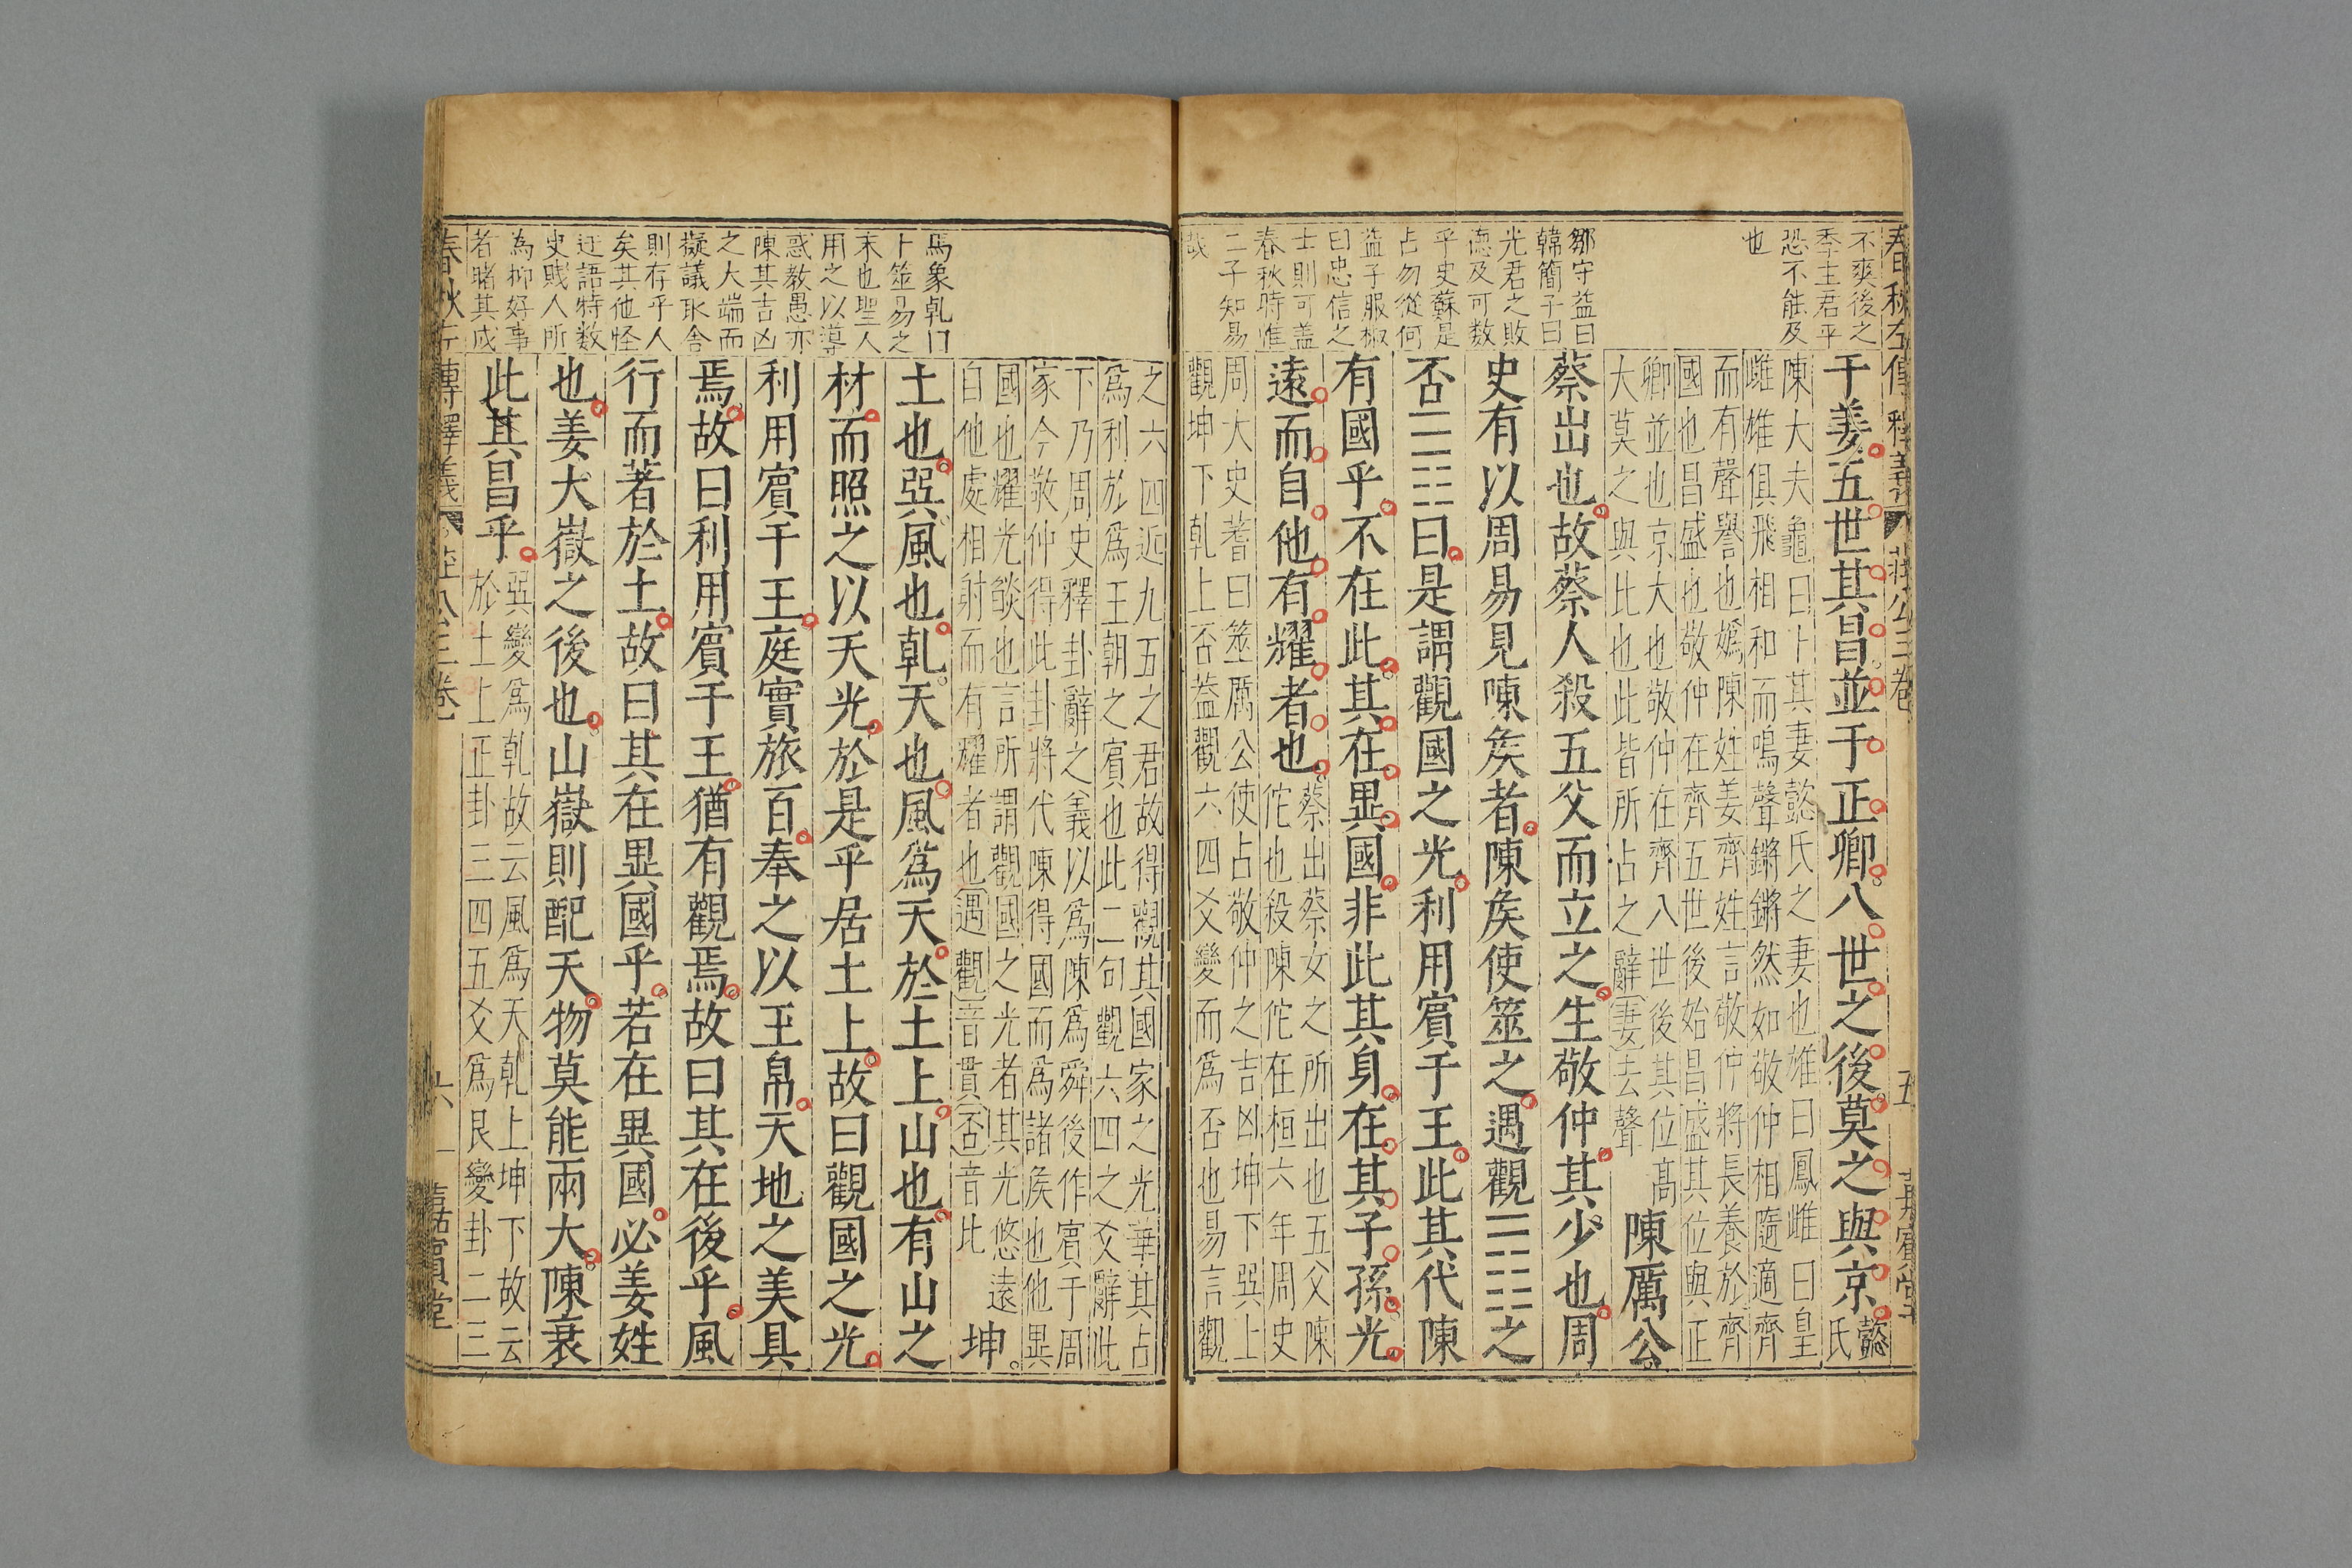 春秋左傳釋義
莊公三卷
五
嘉賓堂
不爽後之
季主君平
恐不能及
也
鄒守益曰
韓簡子曰
光君之敗
德及可數
乎史蘇是
占勿從何
益子服椒
曰忠信之
士則可盖
春秋時惟
二子知易
哉
于姜五世其昌並于正卿八世之後莫之與京懿
氏
陳大夫龜曰卜其妻懿氏之妻也雄曰鳳雌曰皇
雌雄俱飛相和而鳴聲鏘鏘然如敬仲相隨適齊
而有聲譽也嬀陳姓姜齊姓言敬仲將長養於齊
國也昌盛也敬仲在齊五世後始昌盛其位與正
卿並也京大也敬仲在齊八世後其位高
大莫之與比也此皆所占之辭妻去聲
陳厲公
蔡出也故蔡人殺五父而立之生敬仲其少也周
史有以周易見陳矦者陳矦使筮之遇觀䷓之
否䷋曰是謂觀國之光利用賓于王此其代陳
有國乎不在此其在異國非此其身在其子孫光
遠而自他有耀者也
蔡出蔡女之所出也五父陳
佗也殺陳佗在桓六年周史
周大史蓍曰筮厲公使占敬仲之吉凶坤下巽上
觀坤下乾上否益觀六四爻變而爲否也易言觀
之六四近九五之君故得觀其國家之光華其占
爲利於爲王朝之賓也此二句觀六四之爻辭此
下乃周史釋卦辭之義以爲陳爲舜後作賓于周
家今敬仲得此卦將代陳得國而爲諸矦也他異
國也耀光燄也言所謂觀國之光者其光悠遠
自他處相射而有耀者也遇觀音貫否音比
坤
馬象乹門
卜筮易之
末也聖人
用之以導
惑教愚亦
陳其吉凶
之大端而
擬議取舍
則存乎人
矣其他怪
迂語特数
史賤人所
為抑好事
者睹其成
土也巽風也乹天也風爲天於土上山也有山之
材而照之以天光於是乎居土上故曰觀國之光
利用賓于王庭實旅百奉之以玉帛天地之美具
焉故曰利用賓于王猶有觀焉故曰其在後乎風
行而著於土故曰其在異國乎若在異國必姜姓
也姜大嶽之後也山嶽則配天物莫能兩大陳衰
此其昌乎
巽變爲乹故云風爲天乹上坤下故云
於土上正卦三四五爻爲艮變卦二三
春秋左傳釋義
莊公三卷
六
嘉賓堂